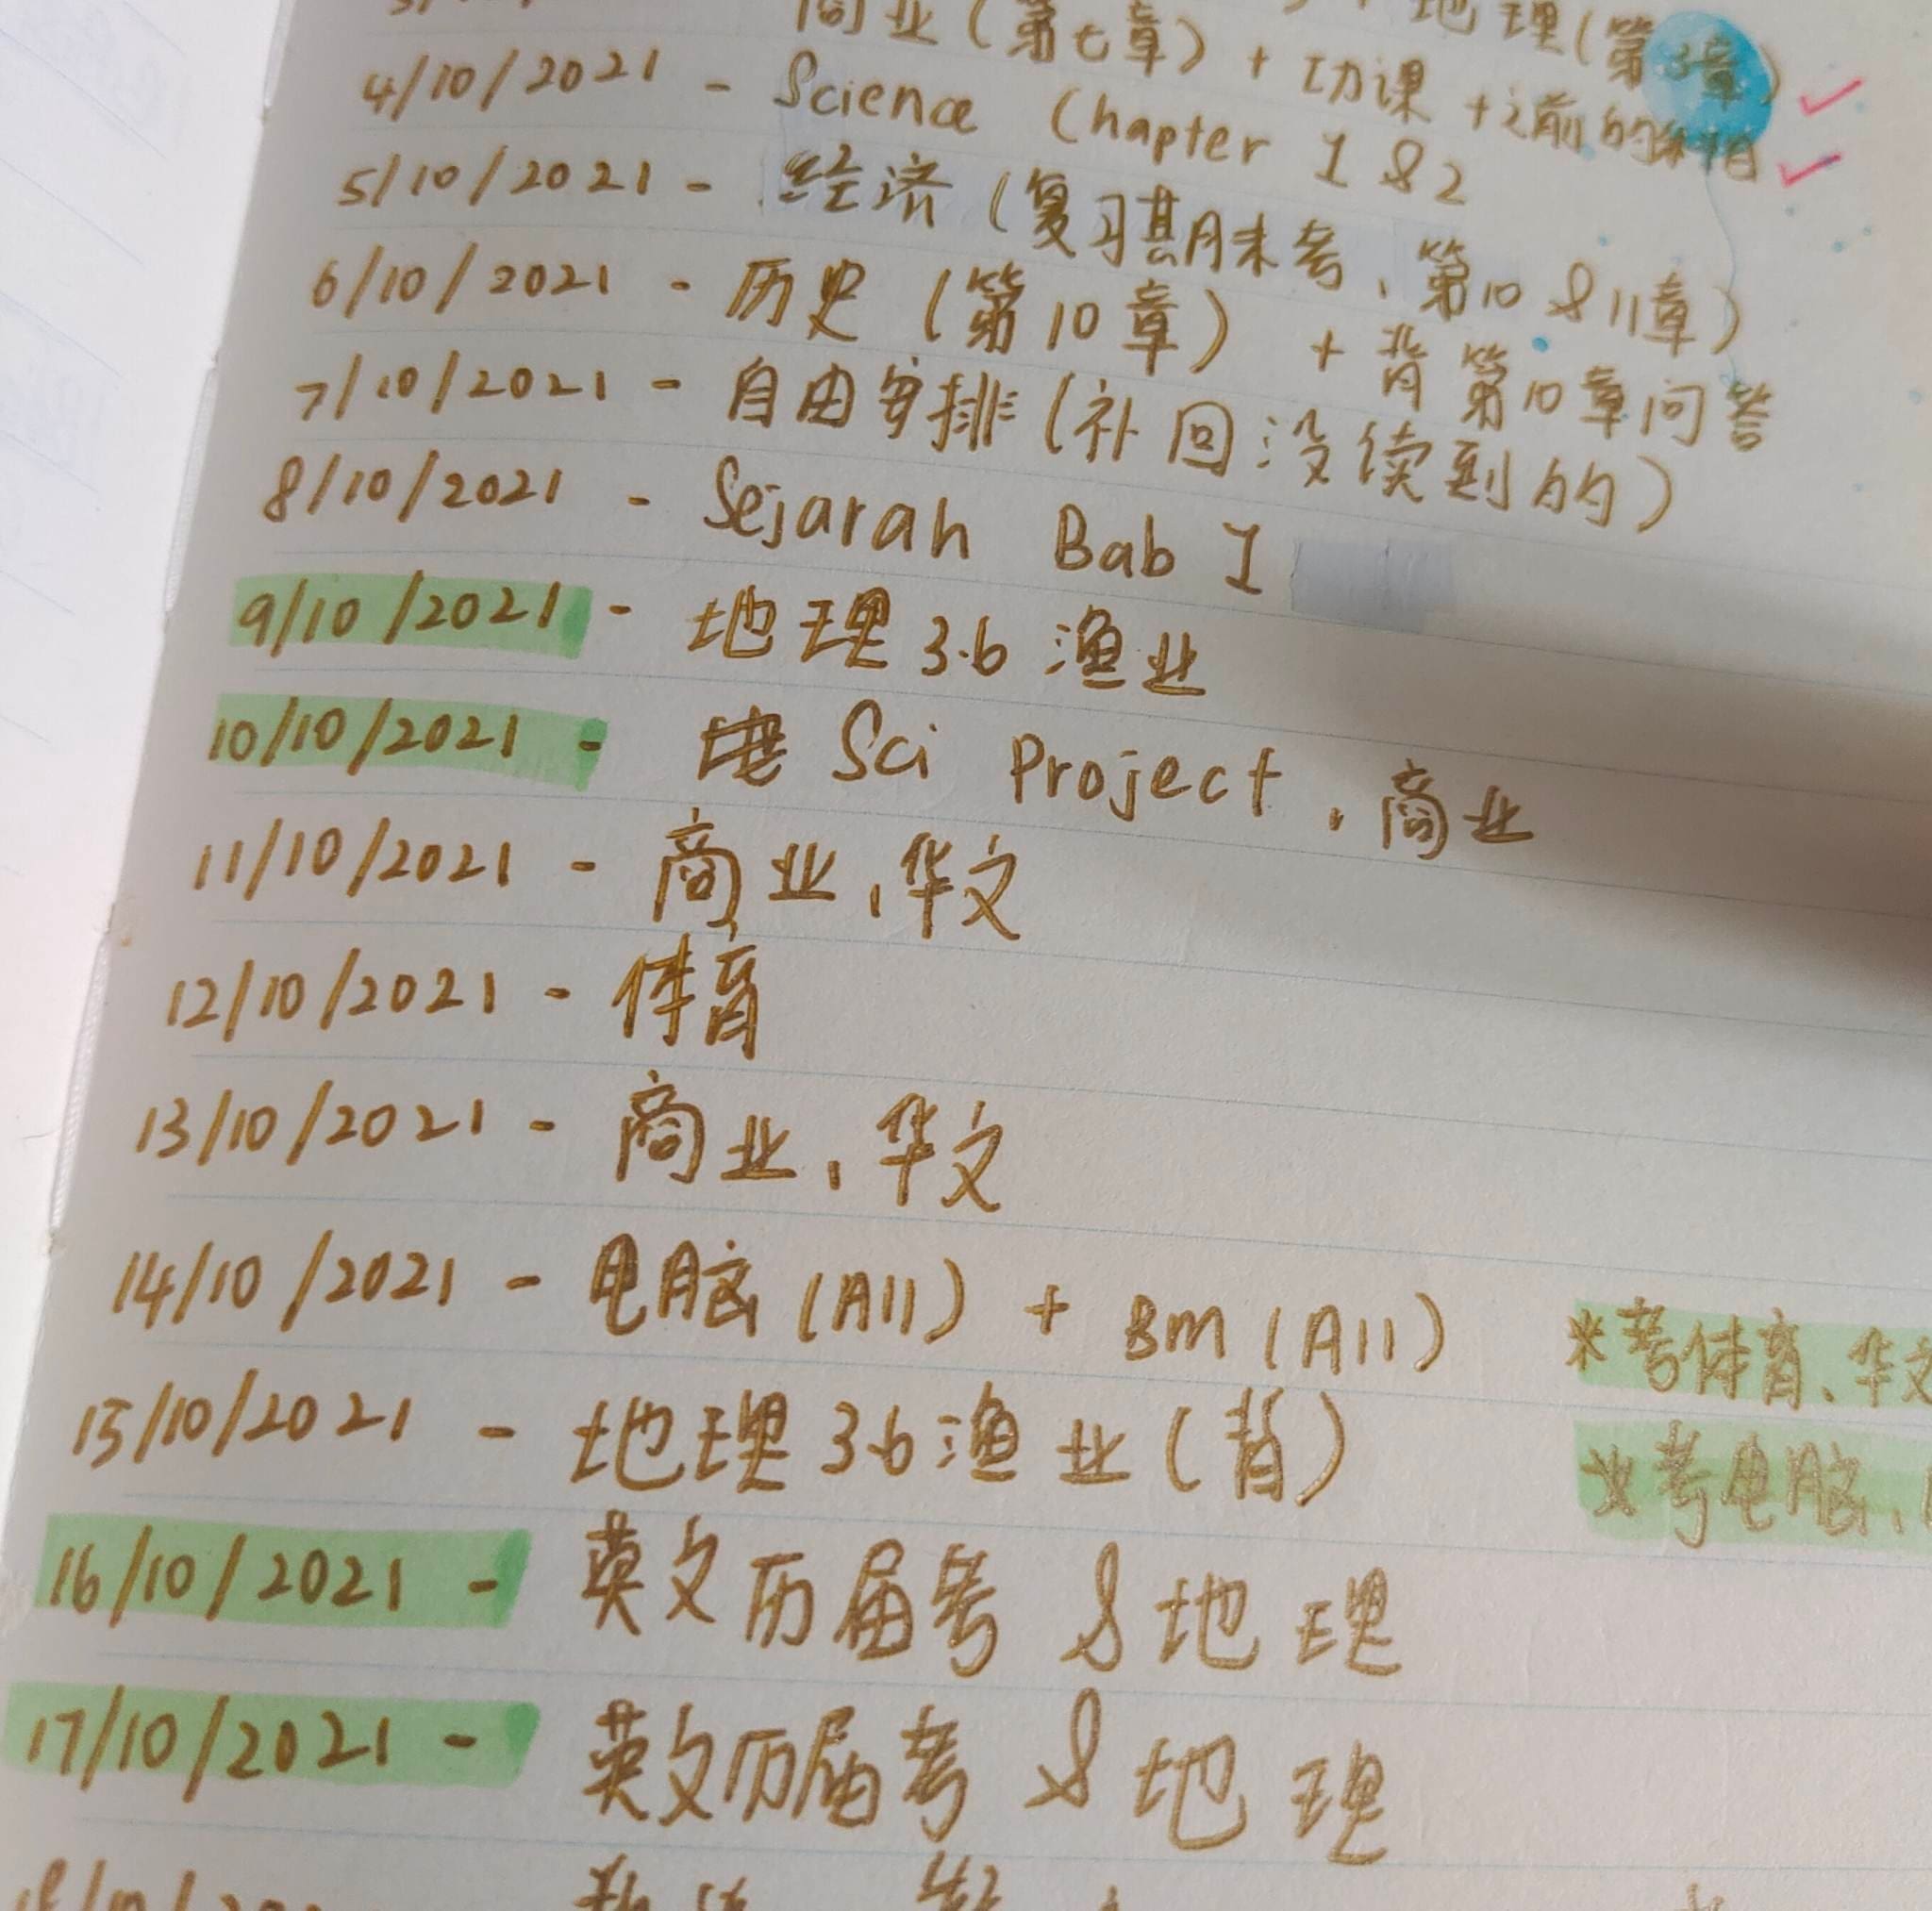 商业(第七章) + 功课 + 之前的
地理(第3章)
4/10/2021 - Science Chapter 1 & 2
5/10/2021 - 经济(复习期末考、第10 & 11章)
6/10/2021 - 历史(第10章) + 背第10章问答
7/10/2021 - 自由安排(补回没续到的)
8/10/2021 - Sejarah Bab 1
9/10/2021 - 地理 3.6 渔业
10/10/2021 - Sci Project、商业
11/10/2021 - 商业、华文
12/10/2021 - 体育
13/10/2021 - 商业、华文
14/10/2021 - 电脑(All) + BM(All) *考体育、华文
15/10/2021 - 地理 3.6 渔业(背) *考电脑、
16/10/2021 - 英文历届考 & 地理
17/10/2021 - 英文历届考 & 地理